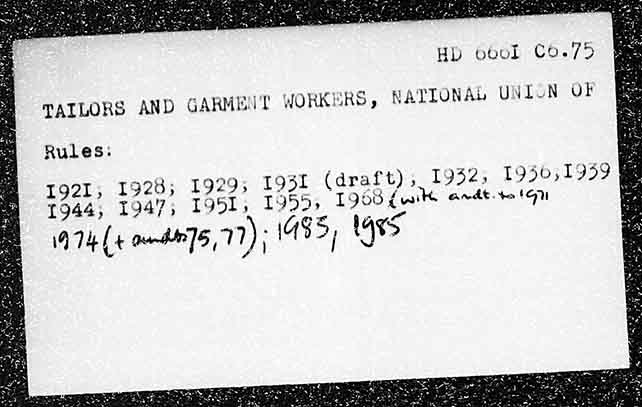 HD 6661 C6.75
TAILORS AND GARMENT WORKERS, NATIONAL UNION OF
Rules:
I92I; I928; I929; I93I (draft); I932; I936,I939
I944; I947; I95I; I955, I968 (with amdt. to 1971
1974 (+ amdts 75, 77); 1983, 1985